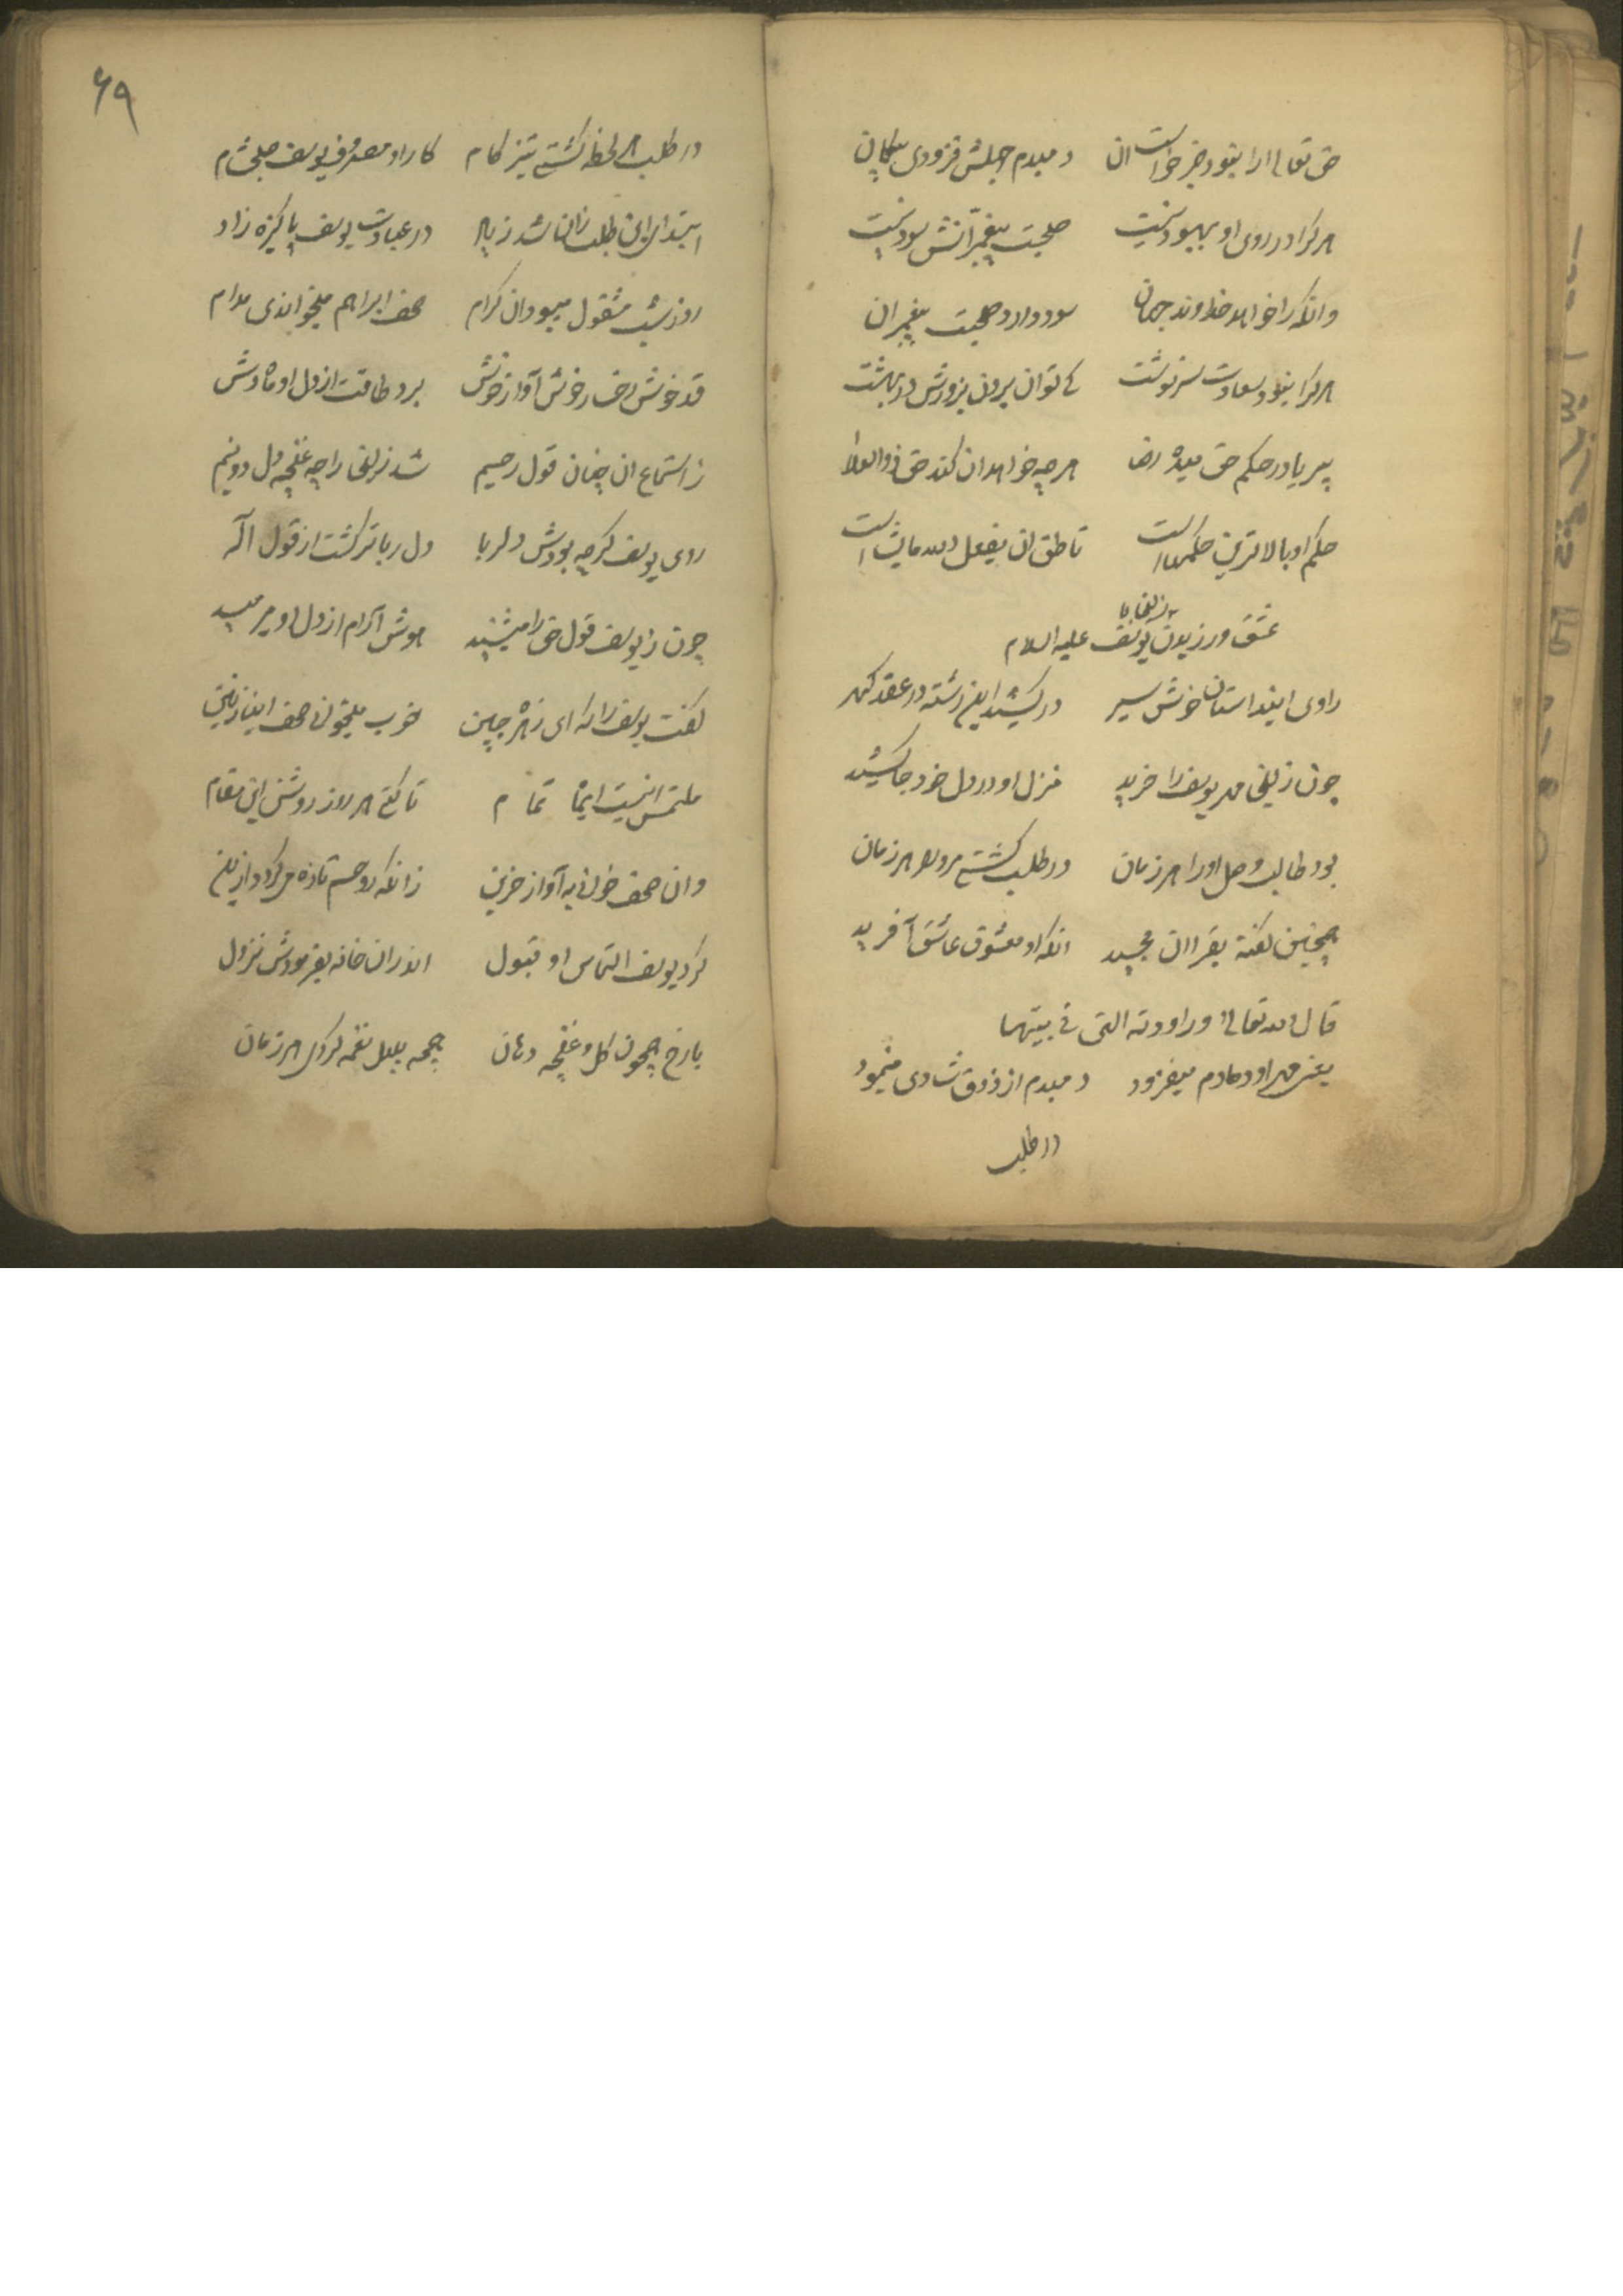 حق تعالی ارا نبود جز خواست ان دمبدم جهلش فزودی بیکمان
هر کرا در روی او بهبود نیست صحبت پیغمبرانش سود نیست
وانکه را خواهد خداوند جهان سود دارد صحبت پیغمبران
هر کرا نبود سعادت سرنوشت کی توان بردن بزورش در بهشت
هر چه خواهد ان کند حق ذو العلا
حکم او بالاترین حکمهاست ناطق ان یفعل الله مایشاست
عشق ورزیدن زلیخا با یوسف علیه السلام
راوی این داستان خوش سیر در کشید این رشته در عقد کهر
چون زلیخی مر یوسف را خرید منزل او در دل خود جا کشید
بود طالب وصل او را هر زمان در طلب کشتی هر زمان
همچنین کفته بقران مجید انکه او معشوق عاشق آفرید
قال الله تعالی وراودته التی فی بیتها
یعنی مهر او دمادم میفزود دمبدم از ذوق شادی مینمود
در طلب
۶۹
در طلب هر لحظه کشتی تیز کام کار او مصروف یوسف صبح شام
ابتدای این طلب زان شد زیاد در عبادت یوسف پاکیزه زاد
روز شب مشغول میبود ان کرام صحف ابراهم میخواندی مدام
قد خوش رخسار خوش آواز خوش برد طاقت از دل او ماه وش
ز استماع ان چنان قول رحیم شد زلیخا را چه غنچه دل دو نیم
روی یوسف کرچه بودش دلربا دل رباتر کشت از قول اله
چون ز یوسف قول حق را میشنید هوش آرام از دل او میرمید
کفت یوسف را که ای زهره جبین خوب میخوانی صحف ای نازنین
ملتمس اینست تمام تا کنی هر روز روشن این مقام
وان صحف خوانی به آواز حزین زانکه روحم تازه میکردد ازین
کرد یوسف التماس او قبول اندران خانه بفرمودش نزول
با رخ همچون کل و غنچه دهان همچه بلبل نغمه کردی هر زمان